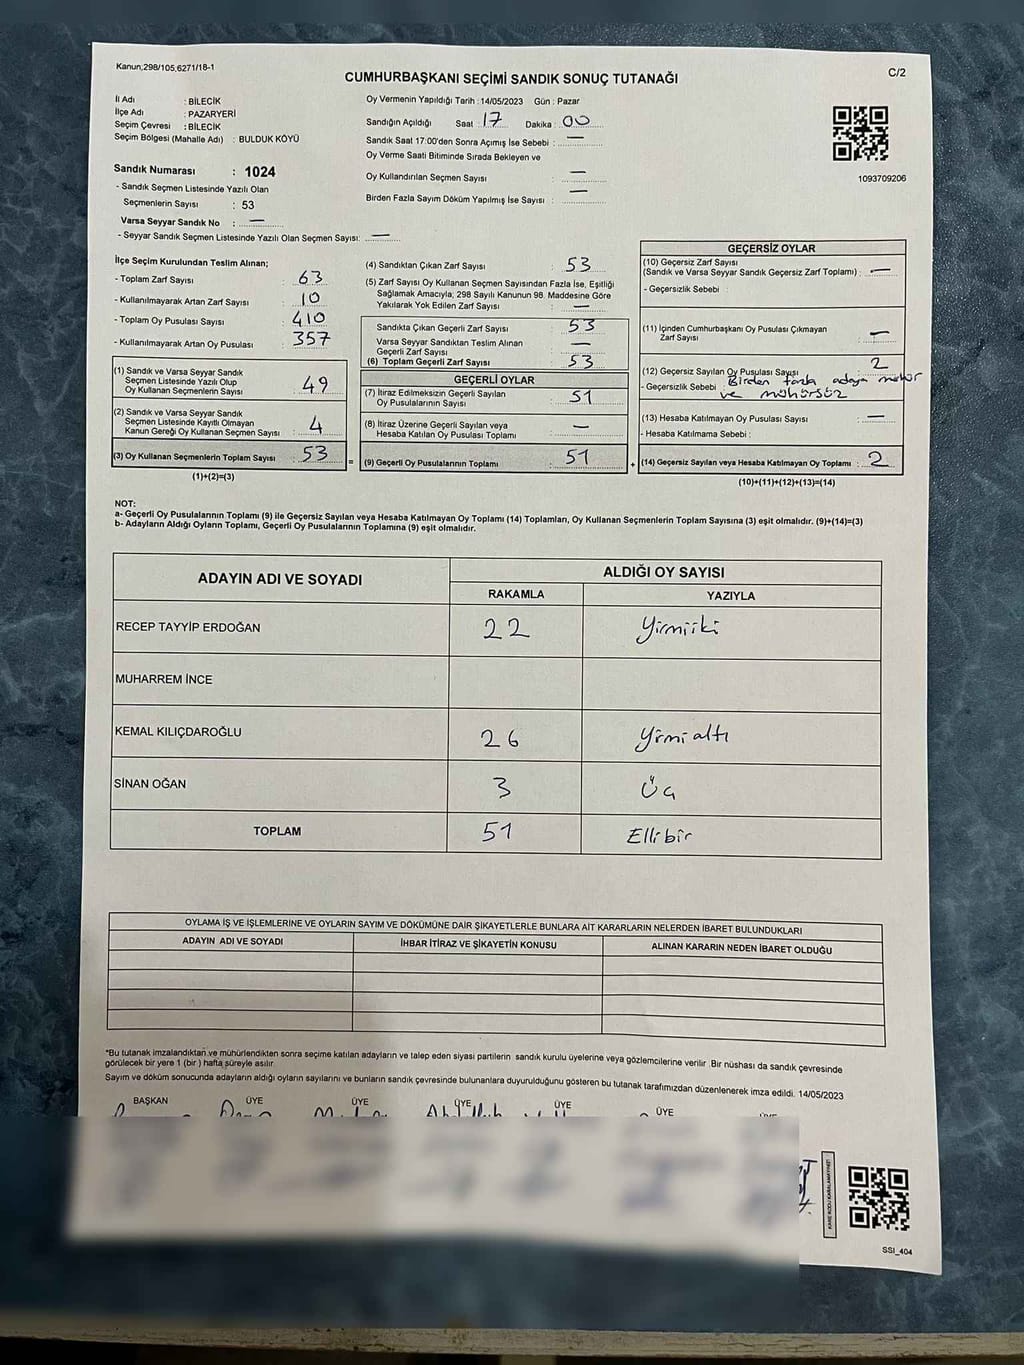 Kanun,298/105,6271/18-1
CUMHURBAŞKANI SEÇİMİ SANDIK SONUÇ TUTANAĞI
C/2
İl Adı : BİLECİK
İlçe Adı : PAZARYERİ
Seçim Çevresi : BİLECİK
Seçim Bölgesi (Mahalle Adı) : BULDUK KÖYÜ
Sandık Numarası : 1024
- Sandık Seçmen Listesinde Yazılı Olan
Seçmenlerin Sayısı : 53
Varsa Seyyar Sandık No : —
- Seyyar Sandık Seçmen Listesinde Yazılı Olan Seçmen Sayısı: —
Oy Vermenin Yapıldığı Tarih :14/05/2023 Gün : Pazar
Sandığın Açıldığı Saat : 17 Dakika : 00
Sandık Saat 17:00'den Sonra Açımış İse Sebebi : —
Oy Verme Saati Bitiminde Sırada Bekleyen ve
Oy Kullandırılan Seçmen Sayısı : —
Birden Fazla Sayım Döküm Yapılmış İse Sayısı : —
1093709206
İlçe Seçim Kurulundan Teslim Alınan;
- Toplam Zarf Sayısı : 63
- Kullanılmayarak Artan Zarf Sayısı : 10
- Toplam Oy Pusulası Sayısı : 410
- Kullanılmayarak Artan Oy Pusulası : 357
(1) Sandık ve Varsa Seyyar Sandık
Seçmen Listesinde Yazılı Olup
Oy Kullanan Seçmenlerin Sayısı : 49
(2) Sandık ve Varsa Seyyar Sandık
Seçmen Listesinde Kayıtlı Olmayan
Kanun Gereği Oy Kullanan Seçmen Sayısı : 4
(3) Oy Kullanan Seçmenlerin Toplam Sayısı : 53
(1)+(2)=(3)
(4) Sandıktan Çıkan Zarf Sayısı : 53
(5) Zarf Sayısı Oy Kullanan Seçmen Sayısından Fazla İse, Eşitliği
Sağlamak Amacıyla; 298 Sayılı Kanunun 98. Maddesine Göre
Yakılarak Yok Edilen Zarf Sayısı : —
Sandıkta Çıkan Geçerli Zarf Sayısı : 53
Varsa Seyyar Sandıktan Teslim Alınan
Geçerli Zarf Sayısı : —
(6) Toplam Geçerli Zarf Sayısı : 53
GEÇERLİ OYLAR
(7) İtiraz Edilmeksizin Geçerli Sayılan
Oy Pusulalarının Sayısı : 51
(8) İtiraz Üzerine Geçerli Sayılan veya
Hesaba Katılan Oy Pusulası Toplamı : —
= (9) Geçerli Oy Pusulalarının Toplamı : 51
GEÇERSİZ OYLAR
(10) Geçersiz Zarf Sayısı
(Sandık ve Varsa Seyyar Sandık Geçersiz Zarf Toplamı) : —
- Geçersizlik Sebebi :
(11) İçinden Cumhurbaşkanı Oy Pusulası Çıkmayan
Zarf Sayısı : —
(12) Geçersiz Sayılan Oy Pusulası Sayısı : 2
- Geçersizlik Sebebi : Birden fazla adaya mühür
ve mühürsüz
(13) Hesaba Katılmayan Oy Pusulası Sayısı : —
- Hesaba Katılmama Sebebi :
+ (14) Geçersiz Sayılan veya Hesaba Katılmayan Oy Toplamı : 2
(10)+(11)+(12)+(13)=(14)
NOT:
a- Geçerli Oy Pusulalarının Toplamı (9) ile Geçersiz Sayılan veya Hesaba Katılmayan Oy Toplamı (14) Toplamları, Oy Kullanan Seçmenlerin Toplam Sayısına (3) eşit olmalıdır. (9)+(14)=(3)
b- Adayların Aldığı Oyların Toplamı, Geçerli Oy Pusulalarının Toplamına (9) eşit olmalıdır.
ADAYIN ADI VE SOYADI
ALDIĞI OY SAYISI
RAKAMLA YAZIYLA
RECEP TAYYİP ERDOĞAN 22 Yirmiiki
MUHARREM İNCE
KEMAL KILIÇDAROĞLU 26 Yirmialtı
SİNAN OĞAN 3 Üç
TOPLAM 51 Ellibir
OYLAMA İŞ VE İŞLEMLERİNE VE OYLARIN SAYIM VE DÖKÜMÜNE DAİR ŞİKAYETLERLE BUNLARA AİT KARARLARIN NELERDEN İBARET BULUNDUKLARI
ADAYIN ADI VE SOYADI İHBAR İTİRAZ VE ŞİKAYETİN KONUSU ALINAN KARARIN NEDEN İBARET OLDUĞU
*Bu tutanak imzalandıktan ve mühürlendikten sonra seçime katılan adayların ve talep eden siyasi partilerin sandık kurulu üyelerine veya gözlemcilerine verilir. Bir nüshası da sandık çevresinde
görülecek bir yere 1 (bir) hafta süreyle asılır.
Sayım ve döküm sonucunda adayların aldığı oyların sayılarını ve bunların sandık çevresinde bulunanlara duyurulduğunu gösteren bu tutanak tarafımızdan düzenlenerek imza edildi. 14/05/2023
BAŞKAN ÜYE ÜYE ÜYE ÜYE ÜYE
SSI_404